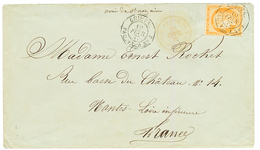 voie de St nazaire
Madame Ernest Rochet
Rue basse du Château Nº 14.
Nantes Loire inférieure
France